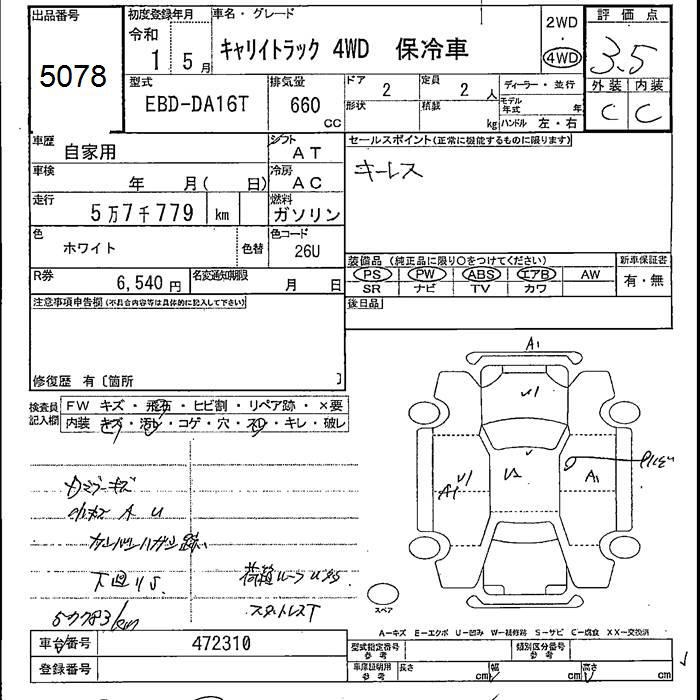 出品番号
5078
初度登録年月
令和
1 5月
車名・グレード
キャリイトラック 4WD 保冷車
2WD
・
4WD
評価点
3.5
外装 内装
C C
型式
EBD-DA16T
排気量
660
CC
ドア
2
形状
定員
2人
積載
kg
ディーラー・並行
モデル年式 年
ハンドル 左・右
車歴
自家用
シフト
AT
車検
年 月( 日)
冷房
AC
走行
5万7千779 km
燃料
ガソリン
色
ホワイト
色替
色コード
26U
R券
6,540円
名変通知期限
月 日
セールスポイント(正常に機能するものに限ります)
キーレス
装備品 (純正品に限り○をつけてください)
PS PW ABS エアB AW
SR ナビ TV カワ
新車保証書
有・無
後日品
注意事項申告欄(不具合内容等は具体的に記入して下さい)
修復歴 有〔箇所 〕
検査員記入欄
FW キズ・飛石・ヒビ割・リペア跡・×要
内装 キズ・汚レ・コゲ・穴・スレ・キレ・破レ
カンバンハガシ跡
下回りS
スタットレスT
57783km
A1
A1
A1
スペア
A-キズ E-エクボ U-凹み W-補修跡 S-サビ C-腐食 XX-交換済
車台番号
472310
登録番号
型式指定番号
参考
類別区分番号
参考
車庫証明用
参考
長さ cm
幅 cm
高さ cm